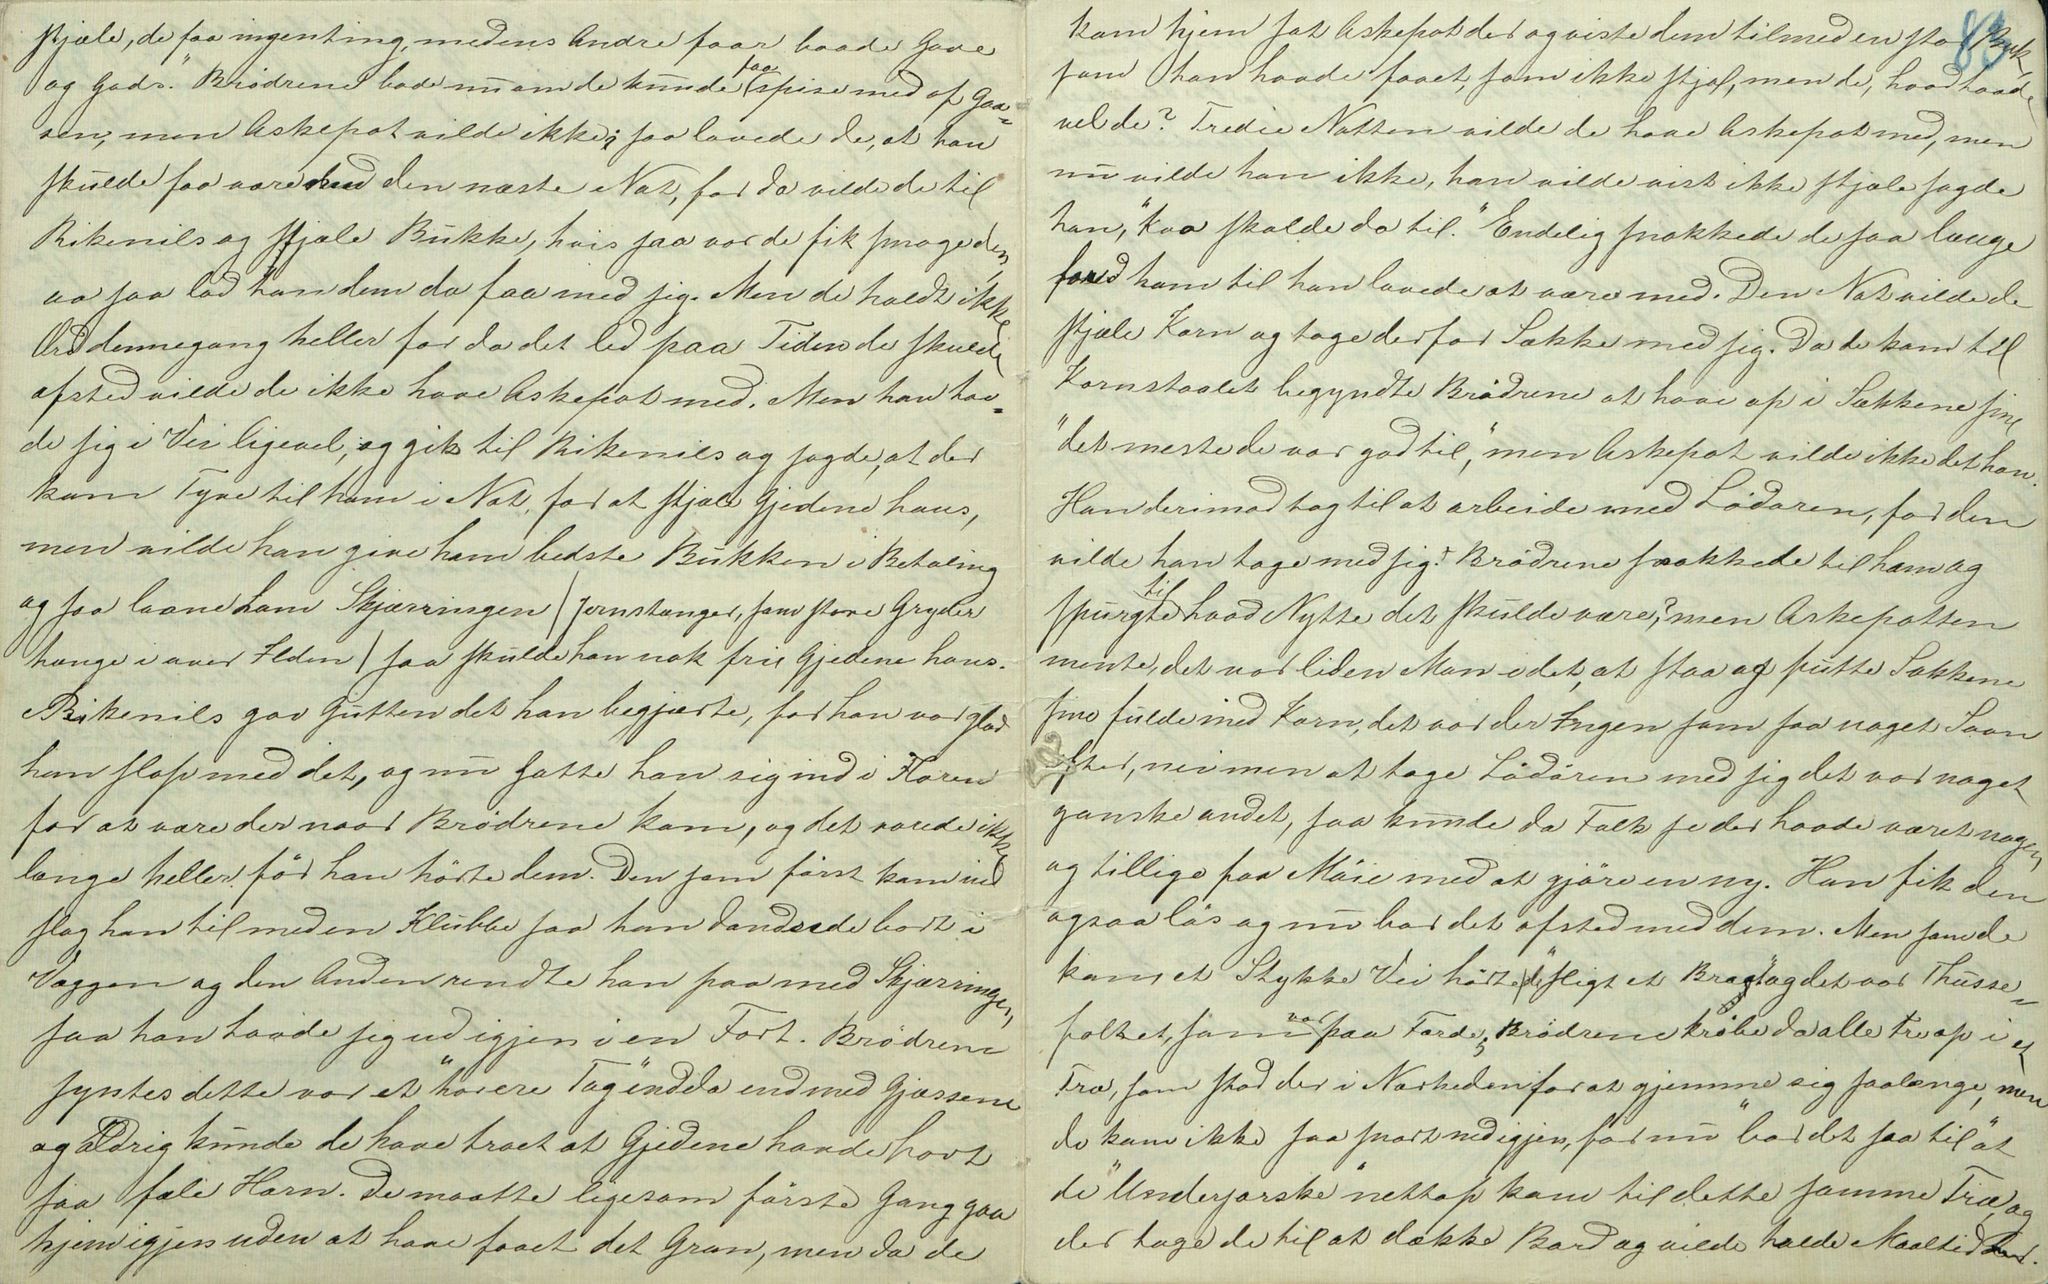 stjæle, de faa ingenting, medens Andre faar baade Gave
og Gods." Brödrene bade nu om de kunde faa spise med af Gaa-
sen, men Askepot vilde ikke; saa lovede de, at han
skulde faa være med den næste Nat, for da vilde de til
Rikenils og stjæle Bukke, hvis saa var de fik smage den,
aa saa lod han dem da faa med sig. Men de holdt ikke
Ord dennegang heller for da det led paa Tiden de skulde
afsted vilde de ikke have Askepot med. Men han hav-
de sig i Vei ligevel, og gik til Rikenils og sagde, at der
kom Tyve til ham i Nat, for at stjæle Gjedene hans,
men vilde han give ham bedste Bukken i Betaling
og saa laane ham Skjærringen / Jernstanger, som store Gryder
hænge i over Ilden / saa skulde han nok frie Gjedene hans.
Rikenils gav Gutten det han begjærte, for han var glad
han slap med det, og nu satte han sig ind i Floren
for at være der naar Brödrene kom, og det varede ikke
længe heller för han hörte dem. Den som först kom ind
slog han til med en Klubbe saa han dandsede bort i
Væggen og den Anden rendte han paa med Skjærringen,
saa han havde sig ud igjen i en Fart. Brödrene
syntes dette var et "hörere Tag" endda end med Gjæssene
og aldrig kunde de have troet at Gjedene havde havt
saa fæle Horn. De maatte ligesom förste Gang gaa
hjem igjen uden at have faaet det Gran, men da de
kom hjem sat Askepot der og viste dem tilmed en stor Buk,
som han havde faaet, som ikke stjal, men de, hvad havde
vel de? Tredie Natten vilde de have Askepot med, men
nu vilde han ikke, han vilde vist ikke stjæle sagde
han, "kva skulde da til." Endelig snakkede de saa længe
med ham til han lovede at være med. Den Nat vilde de
stjæle Korn og toge derfor Sække med sig. Da de kom til
Kornstaalet begyndte Brödrene at have op i Sækkene sine
"det meste de var god til," men Askepot vilde ikke det han.
Han derimod tog til at arbeide med Lödören, for den
vilde han tage med sig. Brödrene snakkede til ham og
spurgte til hvad Nytte det skulde være? men Askepotten
mente, det var liden Mon i det, at staa og putte Sækkene
sine fulde med Korn, det var der Ingen som saa noget Saan
efter, nei men at tage Lödören med sig det var noget
ganske andet, saa kunde da Folk se der havde været nogen,
og tillige faa Möie med at gjöre en ny. Han fik den
ogsaa lös og nu bar det afsted med dem. Men som de
kom et Stykke Vei hörte de "sligt et Brag" og det var Thusse-
folket, som var paa Færde, Brödrene kröbe da alle tre op i et
Træ, som stod der i Nærheden for at gjemme sig saalænge, men
de kom ikke saa snart ned igjen, för nu "bar det saa til" at
de "Underjorske" nettop kom til dette samme Træ, og
der toge de til at dække Bord og vilde holde Maaltid.
83